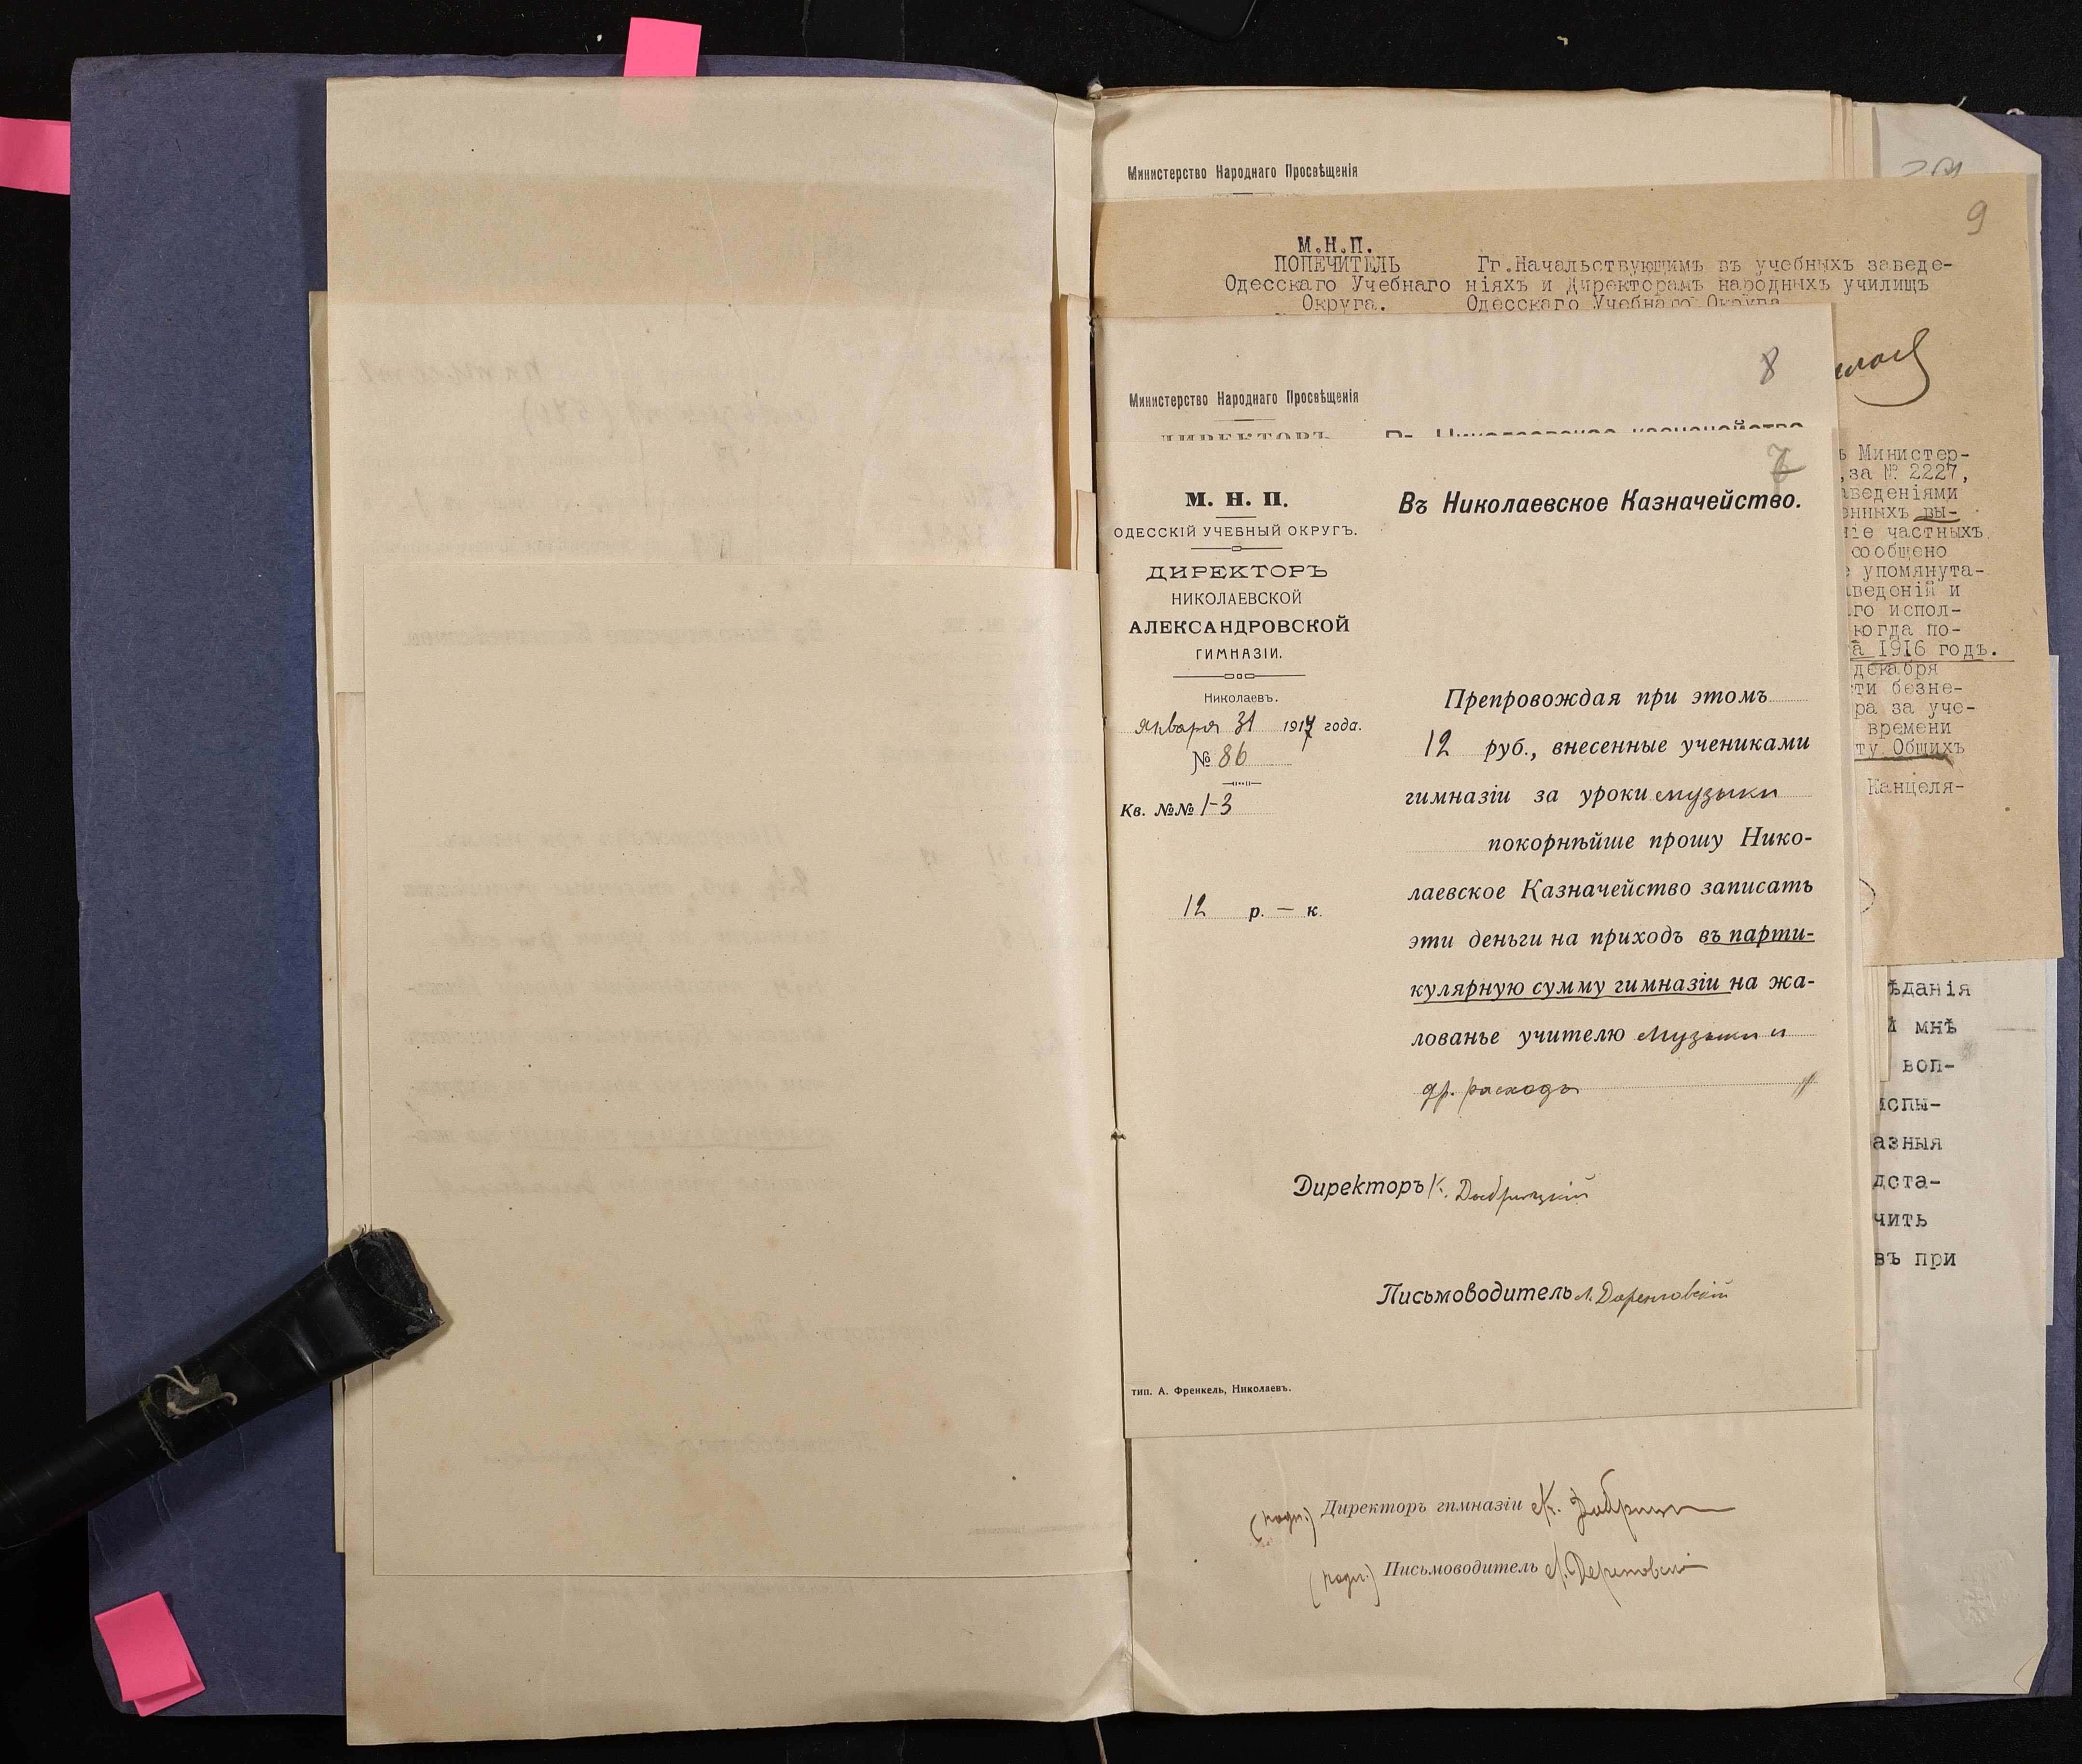 Министерство Народнаго Просвѣщенія
9
М.Н.П.
ПОПЕЧИТЕЛЬ
Одесскаго Учебнаго
Округа.
Гг.Начальствующимъ въ учебныхъ заведе-
ніяхъ и Директорамъ народныхъ училищъ
Одесскаго Учебнаго Округа
8
Министерство Народнаго Просвѣщенія
ДИРЕКТОРЪ
Въ Николаевское казначейство
7
М. Н. П.
ОДЕССКІЙ УЧЕБНЫЙ ОКРУГЪ.
ДИРЕКТОРЪ
НИКОЛАЕВСКОЙ
АЛЕКСАНДРОВСКОЙ
ГИМНАЗІИ.
Николаевъ.
января 31 1917 года.
№ 86
Кв. №№ 1-3
12 р. — к.
Въ Николаевское Казначейство.
Препровождая при этомъ
12 руб., внесенные учениками
гимназіи за уроки музыки
покорнѣйше прошу Нико-
лаевское Казначейство записать
эти деньги на приходъ въ парти-
кулярную сумму гимназіи на жа-
лованье учителю музыки и
др. расходъ
Директоръ К. Добрицкій
Письмоводитель
тип. А. Френкель, Николаевъ.
(подп.) Директоръ гимназіи К.
(подп.) Письмоводитель
ъ Министер-
,за № 2227,
аведеніями
энныхъ вы-
ніе частныхъ
сообщено
е упомянута-
аведеній и
го испол-
когда по-
а 1916 годъ.
декабря
ти безне-
ра за уче-
времени
ту Общихъ
Канцеля-
ѣданія
й мнѣ
воп-
испы-
азныя
дста-
чить
въ при